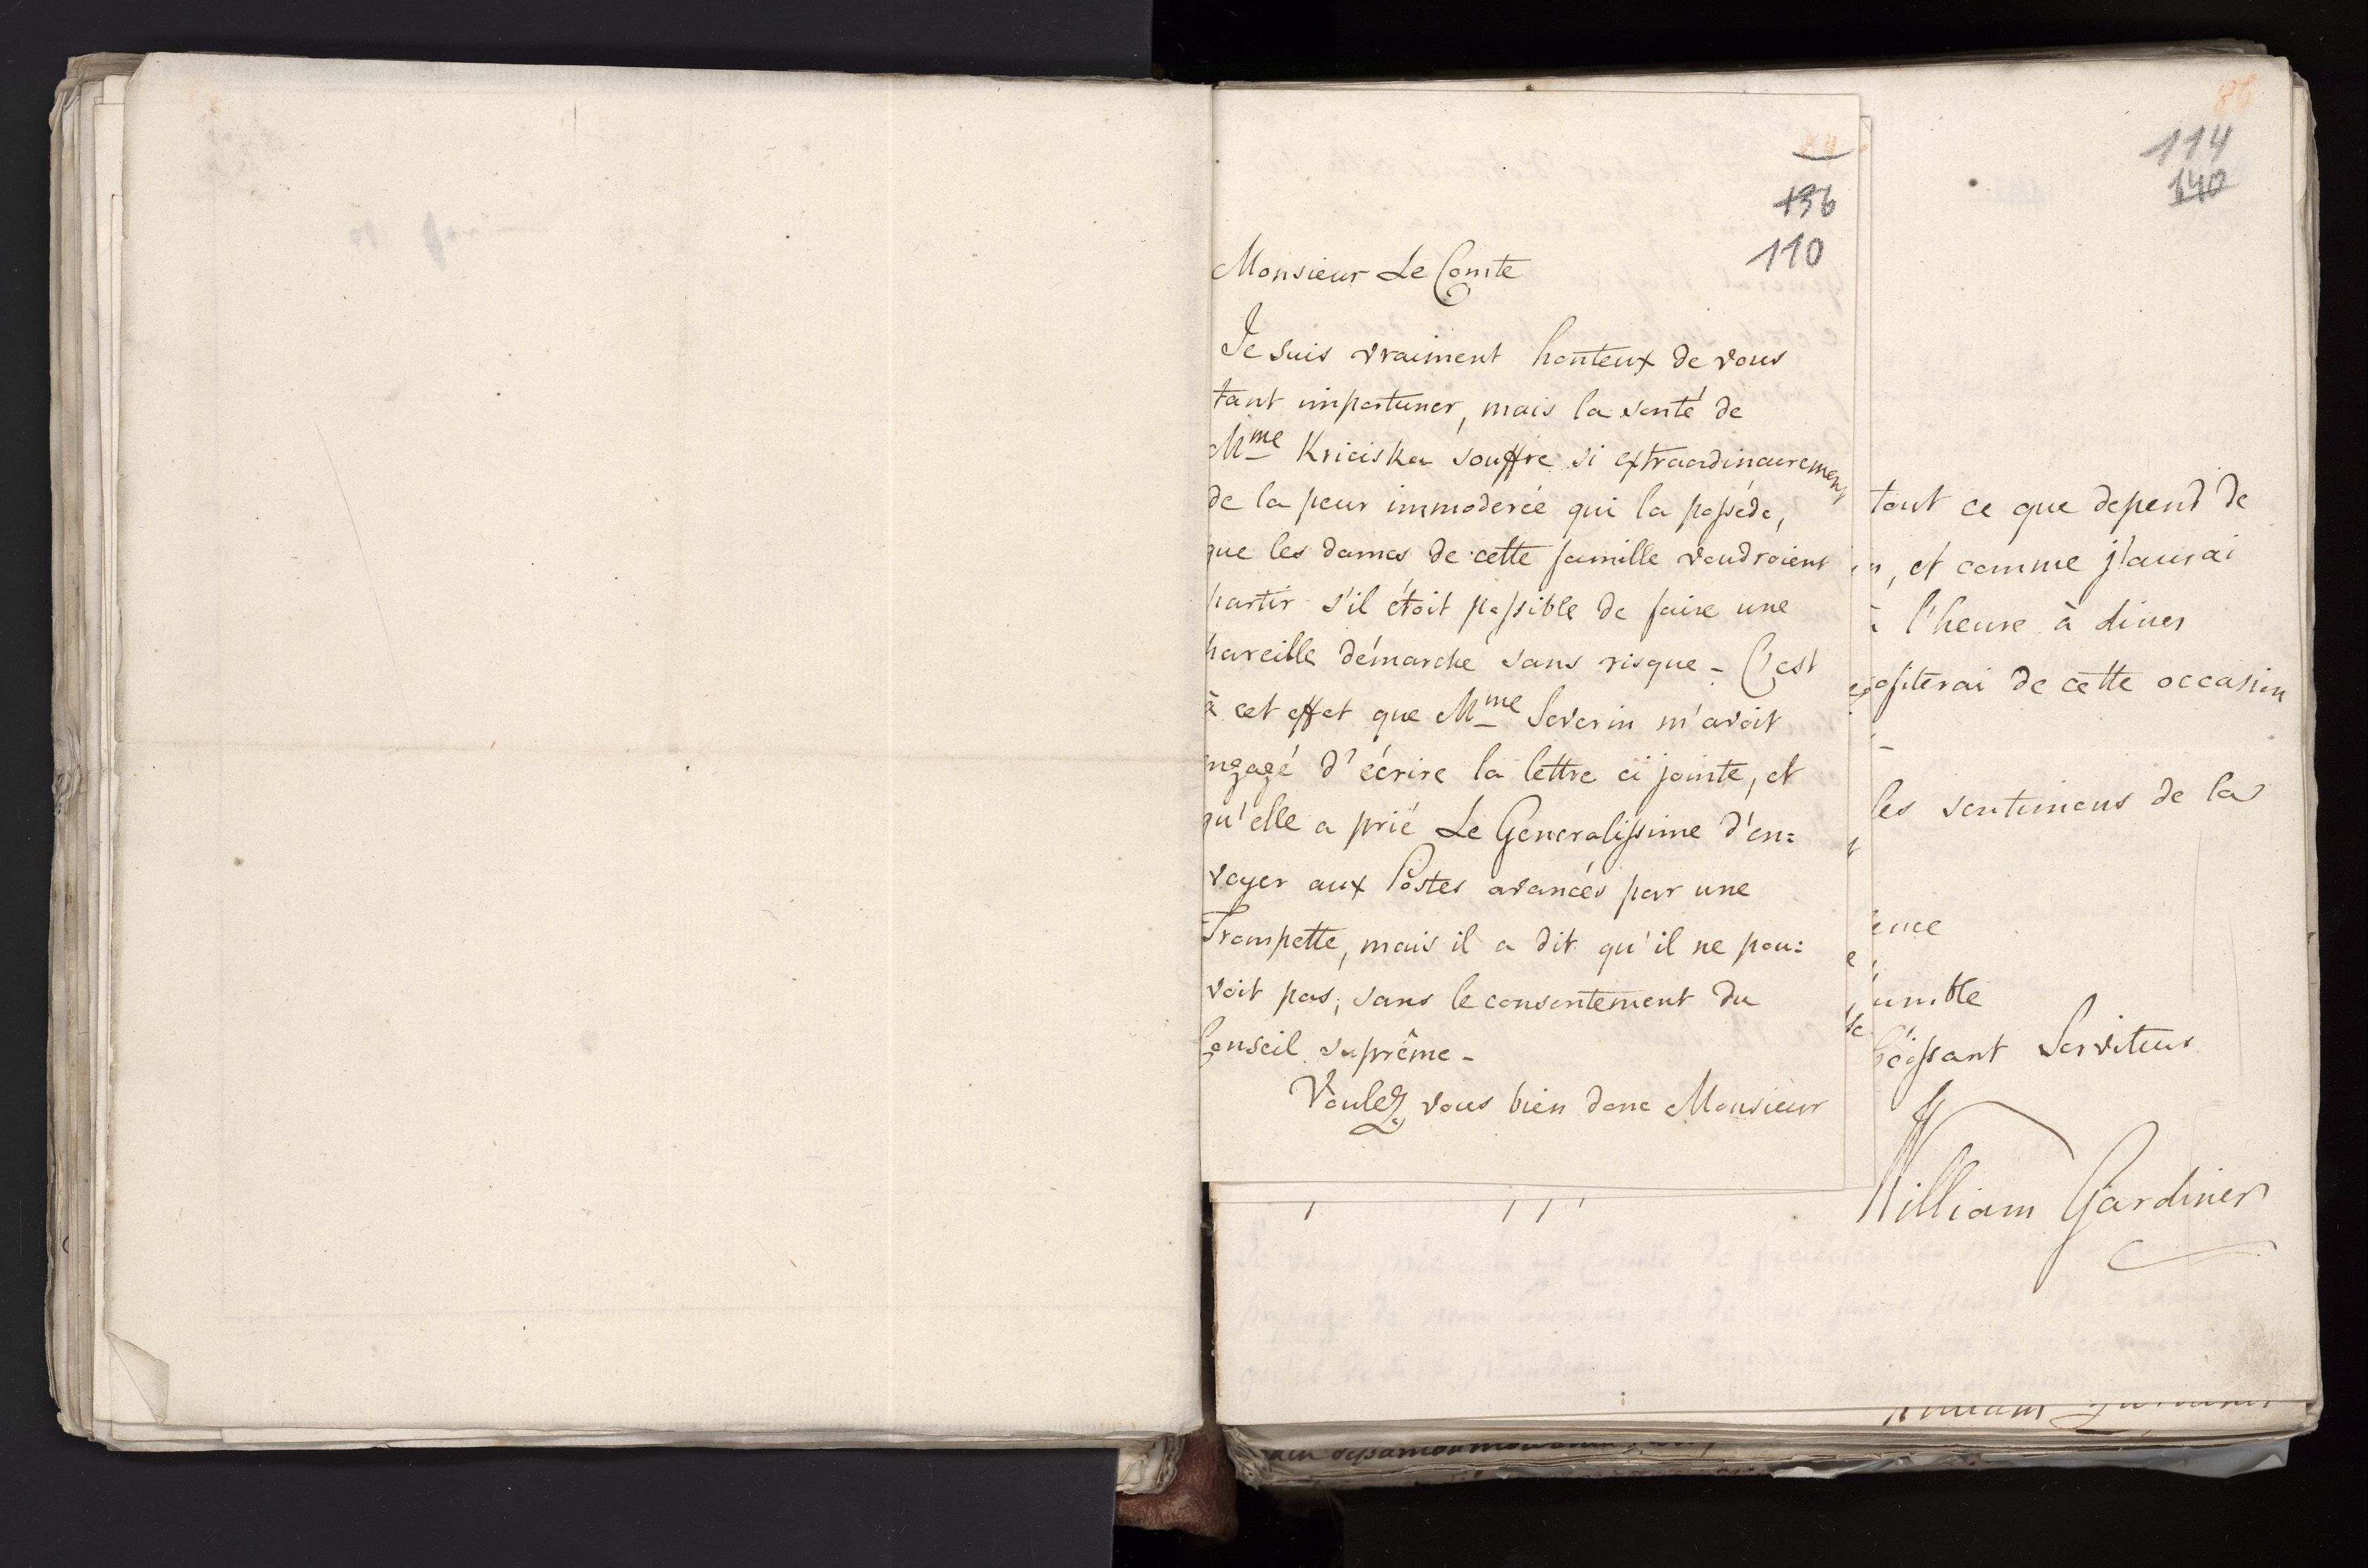 136
110
Monsieur Le Comte
Je suis vraiment honteux de vous
tant importuner, mais la santé de
Mme Kriciska souffre si extraordinairement
de la peur immoderée qui la possède,
que les dames de cette famille voudroient
partir s'il étoit possible de faire une
pareille démarche sans risque - C'est
à cet effet que Mme Severin m'avoit
engagé d'écrire la lettre ci jointe, et
qu'elle a prié Le Generalissime d'en=
voyer aux Postes avancés par une
Trompette, mais il a dit qu'il ne pou=
voit pas, sans le consentement du
Conseil suprême -
Voulez vous bien donc Monsieur
86
114
140
tout ce que depend de
, et comme j'aurai
à l'heure à diner
ofiterai de cette occasion
les sentimens de la
ence
umble
béissant Serviteur
William Gardiner